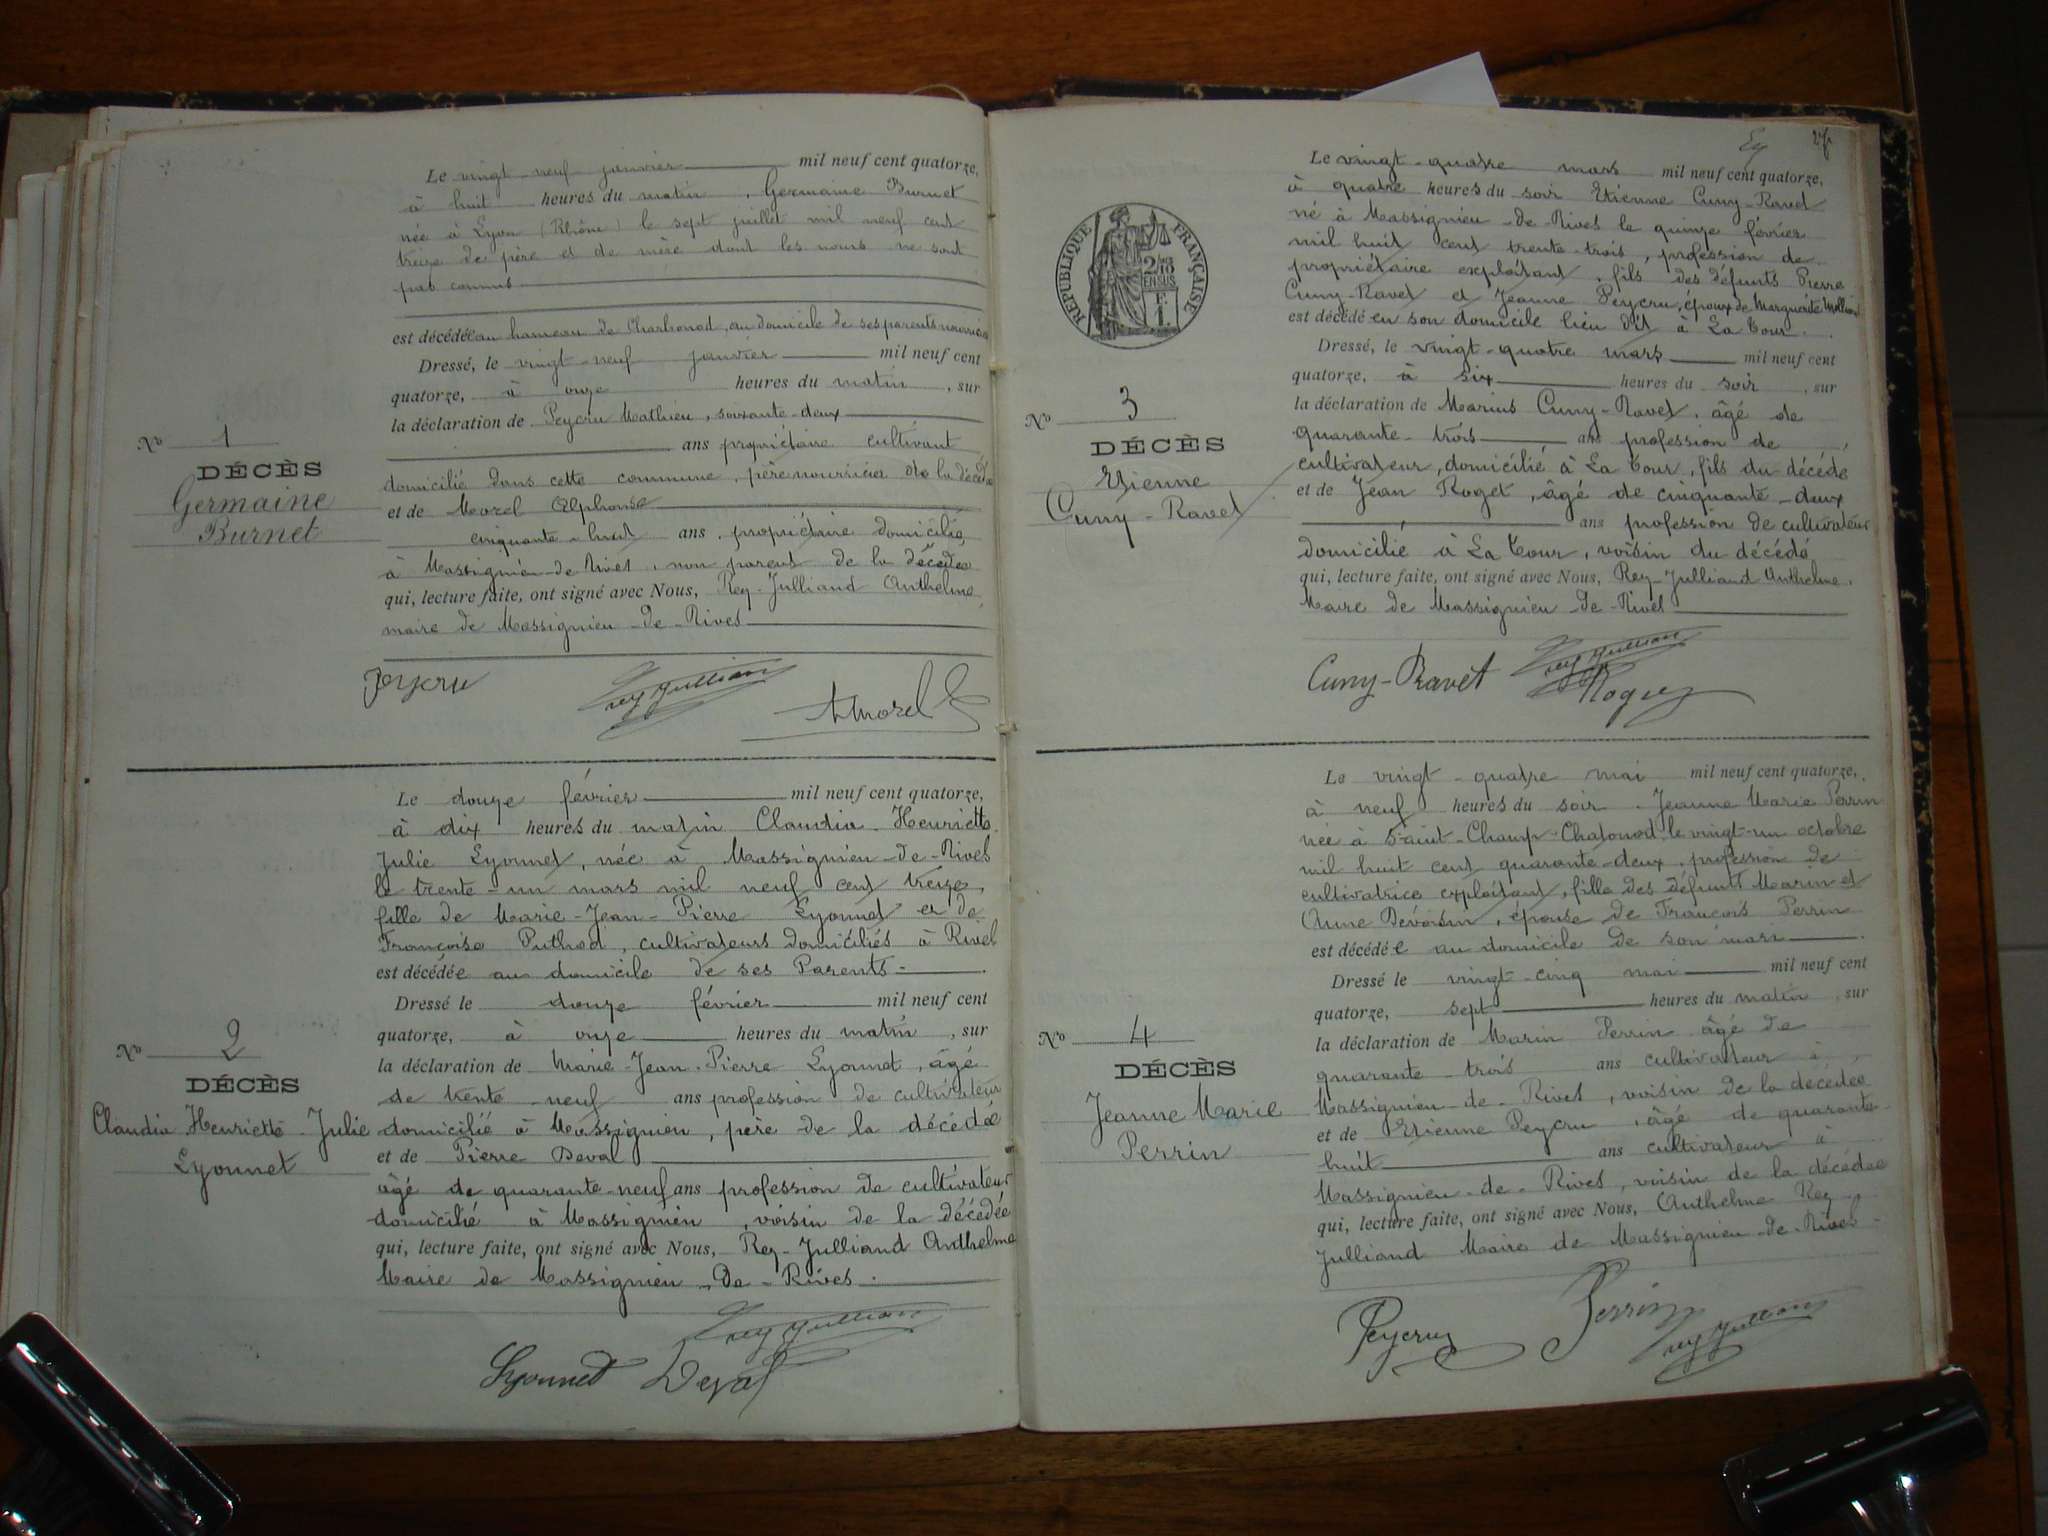 Le vingt-neuf janvier mil neuf cent quatorze,
à huit heures du matin, Germaine Burnet
née à Lyon (Rhône) le sept juillet mil neuf cent
treize de père et de mère dont les noms ne sont
pas connus
est décédée au hameau de Charbonod, au domicile de ses parents nourriciers
Dressé, le vingt-neuf janvier mil neuf cent
quatorze, à onze heures du matin, sur
la déclaration de Peycru Mathieu, soixante-deux
ans propriétaire cultivant
domicilié dans cette commune, père nourricier de la décédée
et de Morel Alphonse
cinquante-huit ans, propriétaire domicilié
à Massignieu-de-Rives, non parent de la décédée
qui, lecture faite, ont signé avec Nous, Rey-Julliand Anthelme
maire de Massignieu-de-Rives
No 1
DÉCÈS
Germaine
Burnet
Peycru Rey Julliand A Morel
Le douze février mil neuf cent quatorze,
à dix heures du matin Claudia Henriette
Julie Lyonnet, née à Massignieu-de-Rives
le trente-un mars mil neuf cent treize,
fille de Marie-Jean-Pierre Lyonnet et de
Françoise Puthod, cultivateurs domiciliés à Rives
est décédée au domicile de ses Parents
Dressé le douze février mil neuf cent
quatorze, à onze heures du matin, sur
la déclaration de Marie-Jean-Pierre Lyonnet, âgé
de trente neuf ans profession de cultivateur
domicilié à Massignieu, père de la décédée
et de Pierre Deval
âgé de quarante-neuf ans profession de cultivateur
domicilié à Massignieu, voisin de la décédée
qui, lecture faite, ont signé avec Nous, Rey-Julliand Anthelme
Maire de Massignieu-De-Rives.
No 2
DÉCÈS
Claudia Henriette Julie
Lyonnet
Rey Julliand
Lyonnet Deval
27
Le vingt-quatre mars mil neuf cent quatorze,
à quatre heures du soir Etienne Cuny-Ravet
né à Massignieu-de-Rives le quinze février
mil huit cent trente-trois, profession de
propriétaire exploitant, fils des défunts Pierre
Cuny-Ravet et Jeanne Peycru, époux de Marguerite
est décédé en son domicile lieu dit à La Tour.
Dressé, le vingt-quatre mars mil neuf cent
quatorze, à six heures du soir, sur
la déclaration de Marius Cuny-Ravet, âgé de
quarante-trois ans profession de
cultivateur, domicilié à La Tour, fils du décédé
et de Jean Roget, âgé de cinquante-deux
ans profession de cultivateur
domicilié à La Tour, voisin du décédé
qui, lecture faite, ont signé avec Nous, Rey-Julliand Anthelme.
Maire de Massignieu-de-Rives
RÉPUBLIQUE FRANÇAISE
2/10
EN SUS
No 3
DÉCÈS
Etienne
Cuny-Ravet
Cuny-Ravet Rey Julliand
Roget
Le vingt-quatre mai mil neuf cent quatorze,
à neuf heures du soir. Jeanne Marie Perrin
née à Saint-Champ-Chatonod le vingt-un octobre
mil huit cent quarante-deux, profession de
cultivatrice exploitant, fille des défunts Marin et
Anne Devoisin, épouse de François Perrin
est décédée au domicile de son mari
Dressé le vingt-cinq mai mil neuf cent
quatorze, sept heures du matin, sur
la déclaration de Marin Perrin âgé de
quarante-trois ans cultivateur à
Massignieu-de-Rives, voisin de la décédée
et de Etienne Peycru, âgé de quarante
huit ans cultivateur à
Massignieu-de-Rives, voisin de la décédée
qui, lecture faite, ont signé avec Nous, Anthelme Rey
Julliand Maire de Massignieu-de-Rives
No 4
DÉCÈS
Jeanne Marie
Perrin
Peycru Perrin Rey Julliand